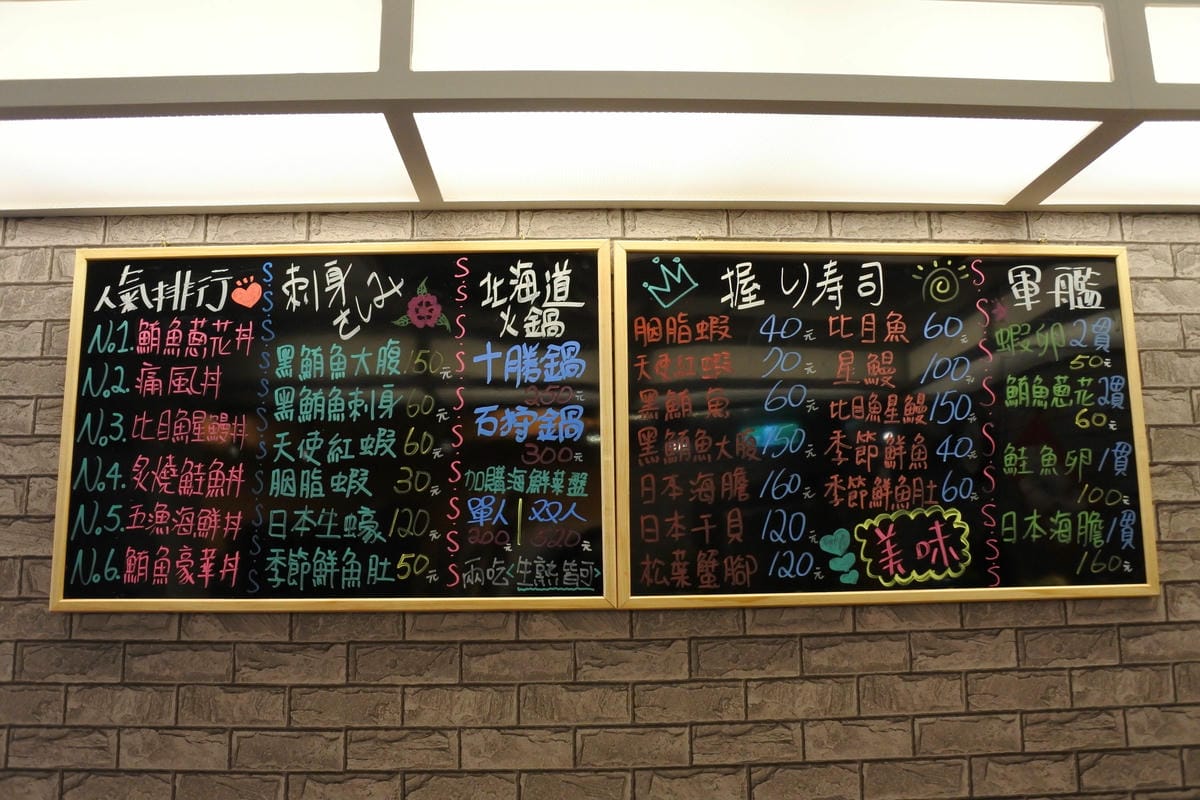 人氣排行
No.1.鮪魚蔥花丼
No.2.痛風丼
No.3.比目魚星鰻丼
No.4.炙燒鮭魚丼
No.5.五漁海鮮丼
No.6.鮪魚豪華丼
刺身
さしみ
黑鮪魚大腹 150元
黑鮪魚刺身 60元
天使紅蝦 60元
胭脂蝦 30元
日本生蠔 120元
季節鮮魚肚 50元
北海道
火鍋
十勝鍋
250元
石狩鍋
300元
加購海鮮菜盤
單人 双人
200元 320元
兩吃<生熟皆可>
握り寿司
胭脂蝦 40元
天使紅蝦 70元
黑鮪魚 60元
黑鮪魚大腹 150元
日本海膽 160元
日本干貝 120元
松葉蟹腳 120元
比目魚 60元
星鰻 100元
比目魚星鰻 150元
季節鮮魚 40元
季節鮮魚肚 60元
美味
軍艦
蝦卵 2貫
50元
鮪魚蔥花 2貫
60元
鮭魚卵 1貫
100元
日本海膽 1貫
160元